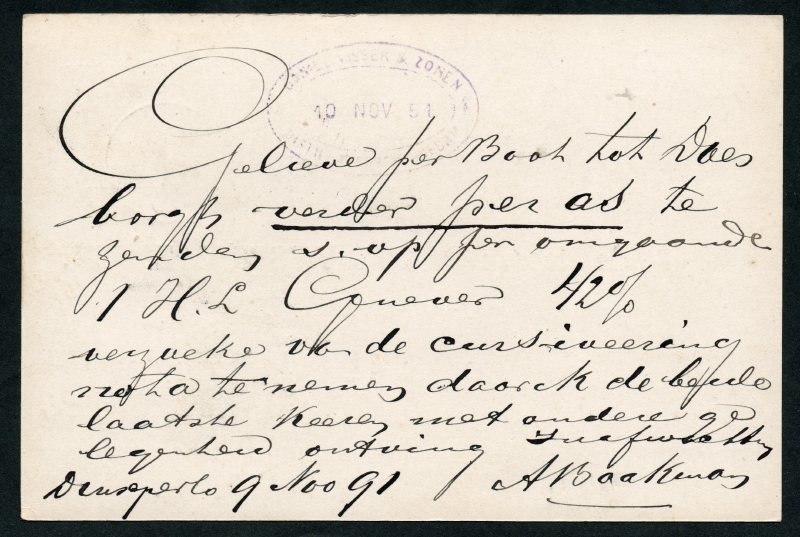 & ZONEN
10 NOV 91
Gelieve per Boot tot Does
borgh verder per as te
zenden s.v.p per omgaande
1 H.L Genever 42%
verzoeke van de cursiveering
nota te nemen daar ik de beide
laatste keeren met andere ge
legenheid ontving
Dinxperlo 9 Nov 91 A Baakman